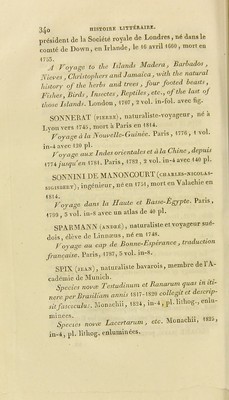 340 HISTOIRE LITTÉRAIRE.
président de la Société royale de Londres, né dans le
comté de Down, en Irlande, le 16 avril 1660, mort en
1753.
A Voyage to the Islands Madera, Barbados,
Nieves, Christophers and Jamaica, with the natural
history of the herbs and trees, four footed beasts,
Fishes, Birds, Insectes, Reptiles, etc., of the last of
those Islands. London, 1707, 2 vol. in-fol. avec fig.
SONNERAT (PIERRE), naturaliste-voyageur, né à
Lyon vers 1745, mort à Paris en 1814.
Voyage à la Nouvelle-Guinée. Paris, 1776, 1 vol.
in-4 avec 120 pl.
Voyage aux Indes orientales et à la Chine, depuis
1774 jusqu'en 1781. Paris, 1782, 2 vol. in-4 avec 140 pl.
SONNINI DE MANONCOURT (CHARLES-NICOLAS-
SIGISBERT), ingénieur, né en 1751, mort en Valachie en
1814.
Voyage dans la Haute et Basse-Égypte. Paris,
1799, 3 vol. in-8 avec un atlas de 40 pl.
SPARMANN (ANDRÉ), naturaliste et voyageur sué-
dois, élève de Linnæus, né en 1748.
Voyage au cap de Bonne-Espérance, traduction
française. Paris, 1787, 3 vol. in-8.
SPIX (JEAN), naturaliste bavarois, membre de l'A-
cadémie de Munich.
Species novæ Testudinum et Ranarum quas in iti-
nere per Brasiliam annis 1817-1820 collegit et descrip-
sit fasciculus. Monachii, 1824, in-4, pl. lithog., enlu-
minées.
Species novæ Lacertarum, etc. Monachii, 1825,
in-4, pl. lithog. enluminées.